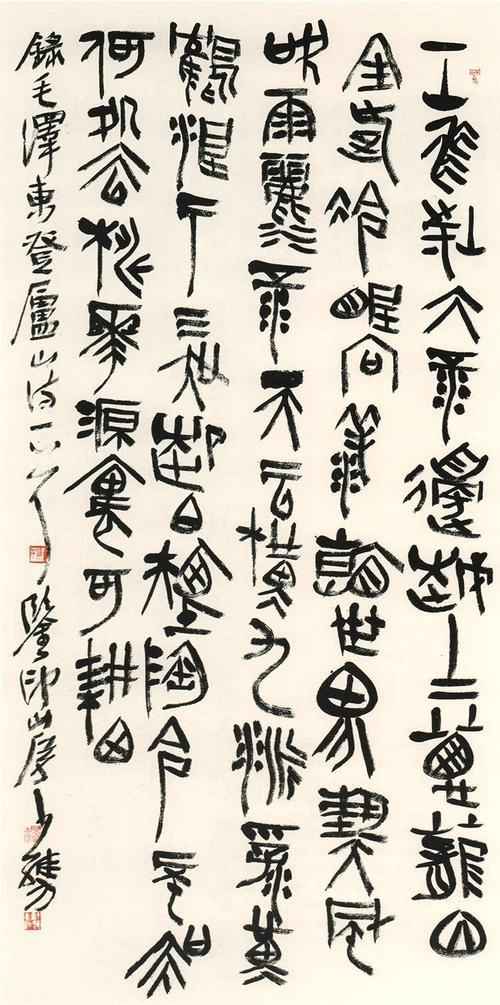 一山飛峙大江邊躍上葱蘢四
百旋冷眼向洋看世界熱風
吹雨灑江天云橫九派浮黃
鶴浪下三吳起白煙陶令不知
何処去桃花源裏可耕田
錄毛澤東登廬山詩一首 鑒印山房少